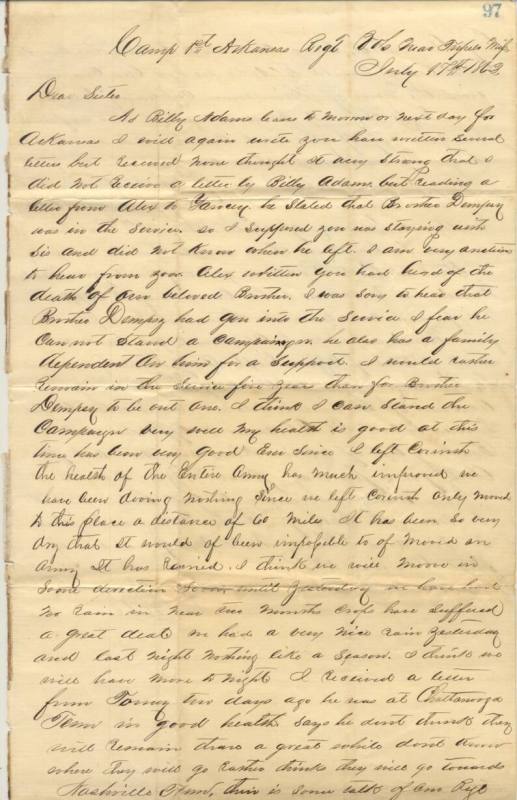 97
Camp 1st Arkansas Regt Vols Near Tupelo Miss
July 17th 1862
Dear Sister
As Billy Adams leaves to morrow or next day for
Arkansas I will again write you have written several
letters but received none thought it very strang that I
did not receive a letter by Billy Adams. but Reading a
letter from Alex to he stated that Brother Dempsy
was in the Service. so I supposed you was staying with
Sis and did not know when he left. I am very anxious
to hear from you. Alex written you had heard of the
death of our beloved Brother. I was sory to hear that
Brother Dempsy had gon into the Service I fear he
can not stand a campaign. he also has a family
dependent on him for a support. I would rather
remain in the Service five year than for Brother
Dempsy to be out one. I think I can stand the
Campaign very well My health is good at this
time has been very good Ever Since I left Corinth
the health of the Entire Army has much improved we
have been dooing nothing Since we left Corinth only moved
to this place a distance of 60 miles It has been so very
dry that it would of been imposible to of moved an
Army It has rained. I think we will moove in
Some direction Soon until yesterday we have had
no rain in near two months crops have suffered
a great deal we had a very nice rain yesterday
and last night nothing like a Season. I think we
will have more to night I received a letter
from Tommy two days ago he was at Chattanooga
Tenn in good health says he dont think they
will remain there a great while dont know
where they will go rather thinks they will go towards
Nashville Tenn, there is some talk of our Regt